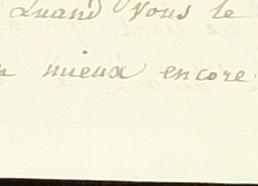 Quand vous le
mieux encore